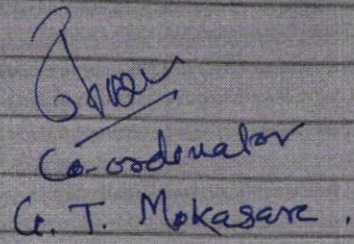 Co-ordinator
G. T. Mokasare.